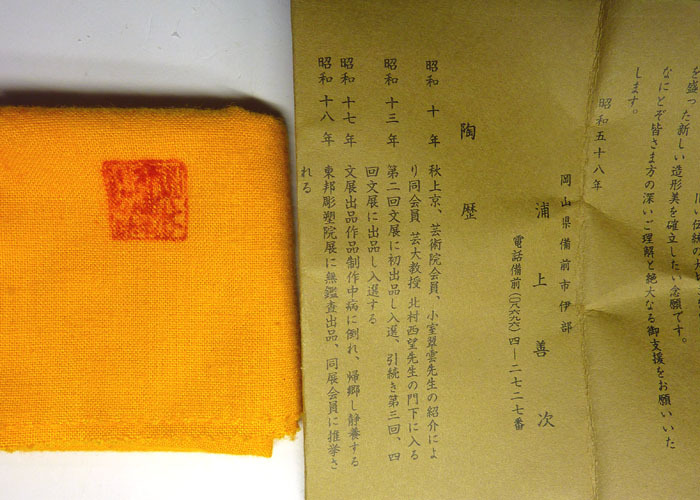 を盛った新しい造形美を確立したい念願です。
なにとぞ皆さま方の深いご理解と絶大なる御支援をお願いいた
します。
昭和五十八年
岡山県備前市伊部
浦上善次
電話備前(〇八六九六)四―二七二七番
陶歴
昭和十年 秋上京、芸術院会員、小室翠雲先生の紹介によ
り同会員 芸大教授 北村西望先生の門下に入る
昭和十三年 第二回文展に初出品し入選、引続き第三回、四
回文展に出品し入選する
昭和十七年 文展出品作品制作中病に倒れ、帰郷し静養する
昭和十八年 東邦彫塑院展に無鑑査出品、同展会員に推挙さ
れる